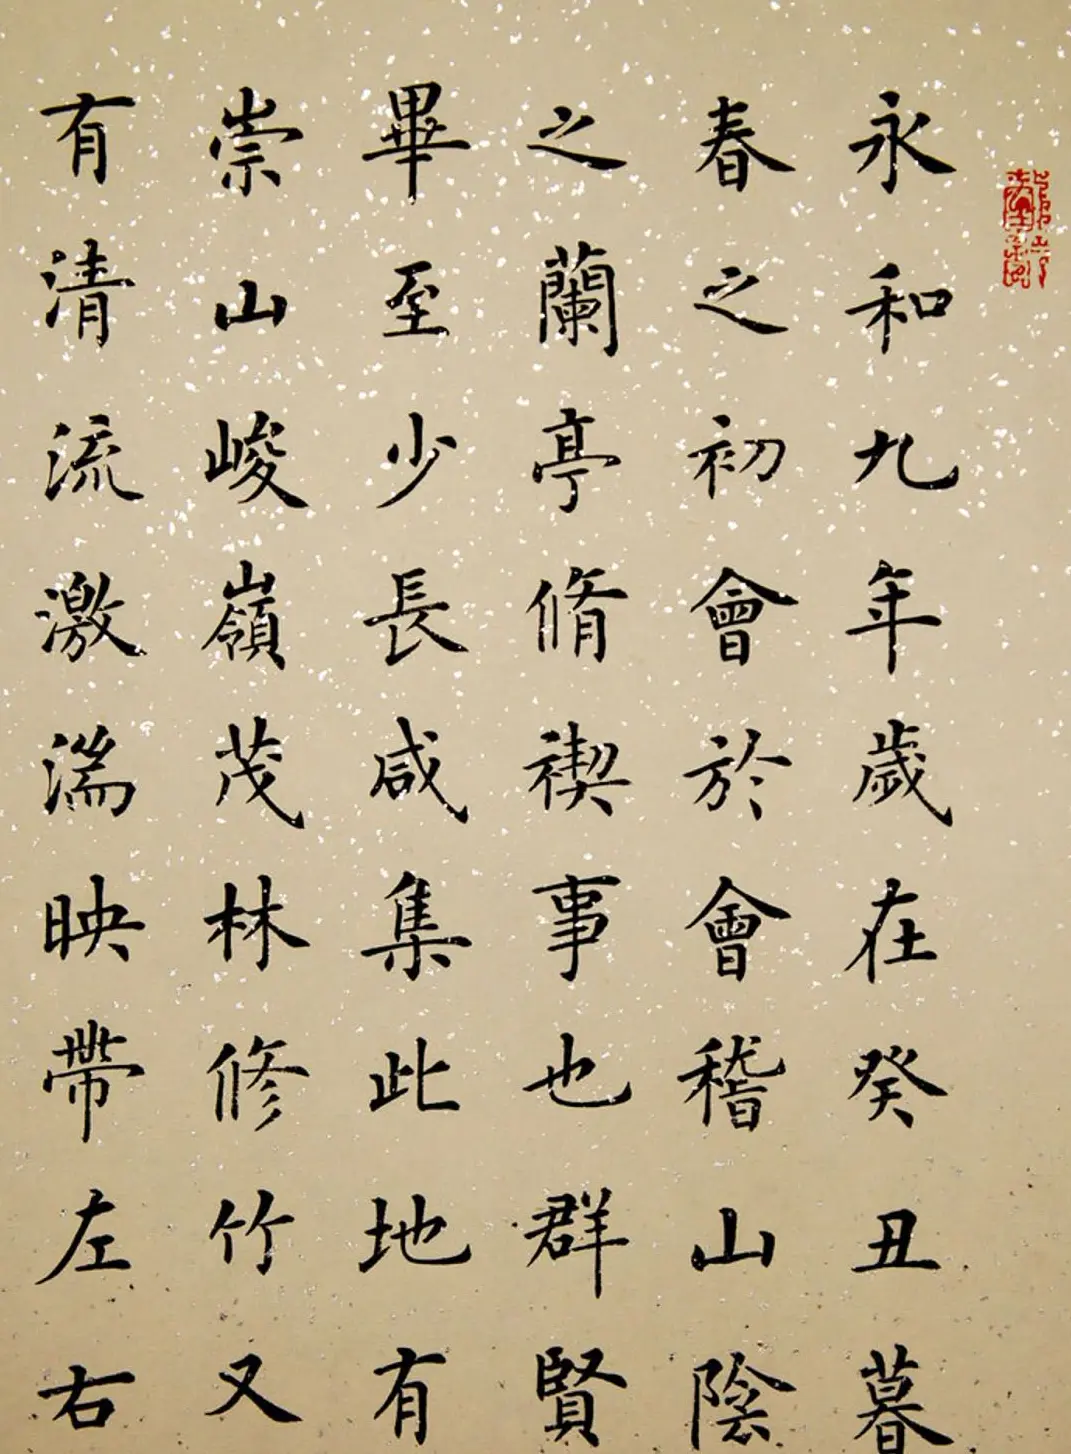 永和九年歲在癸丑暮
春之初會於會稽山陰
之蘭亭脩禊事也群賢
畢至少長咸集此地有
崇山峻嶺茂林修竹又
有清流激湍映帶左右